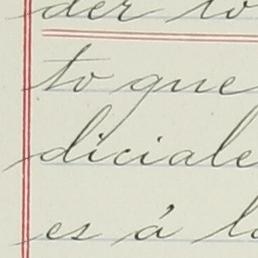 der to
to que
diciale
es á la